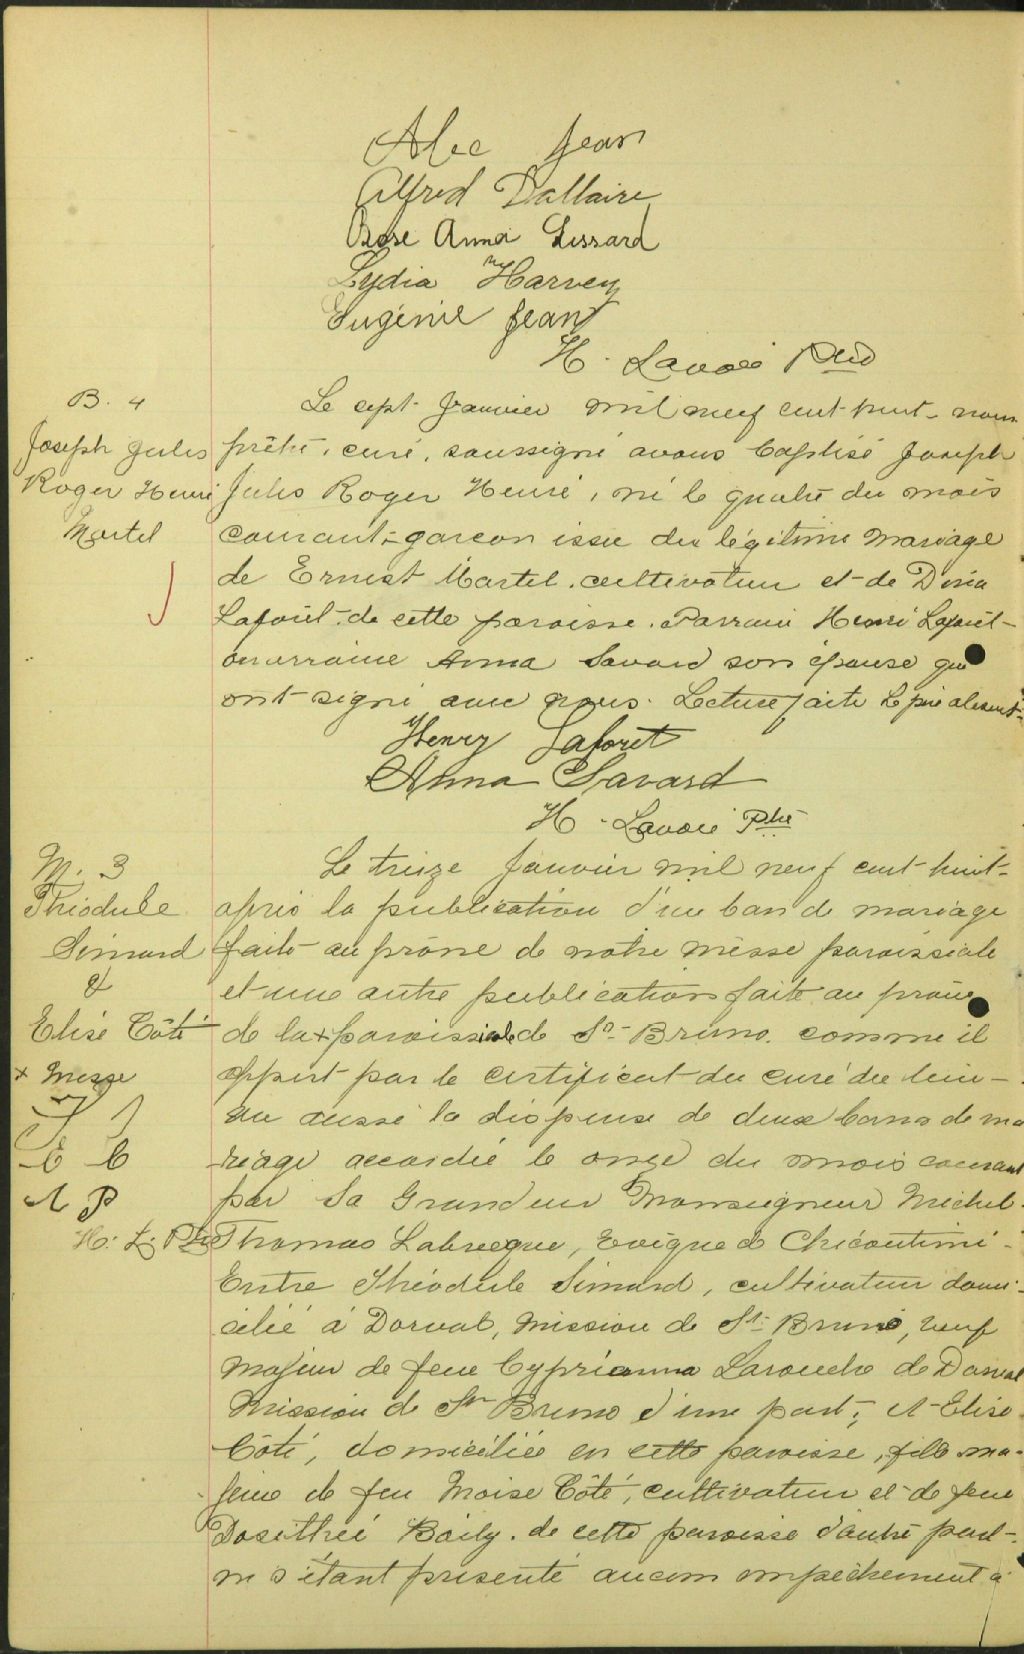 Alec Jean
Alfred Dallaire
Rose Anna Lessard
Lydia Harvey
Eugénie Jean
H. Lavoie Ptre
B. 4
Joseph Jules
Roger Henri
Martel
Le sept Janvier mil neuf cent huit nous
prêtre, curé, soussigné avons baptisé Joseph
Jules Roger Henri, né le quatre du mois
courant, garçon issu du légitime mariage
de Ernest Martel, cultivateur et de
Laforêt de cette paroisse. Parrain Henri Laforêt
marraine Anna Savard son épouse qui
ont signé avec nous. Lecture faite le père absent
Henry Laforet
Anna Savard
H. Lavoie Ptre
M. 3
Théodule
Simard
&
Elise Côté
x Messe
T J
E C
A P
H. L. Ptre
Le treize Janvier mil neuf cent huit
après la publication d'un ban de mariage
faite au prône de notre messe paroissiale
et une autre publication faite au prône
de la x paroissiale de St Bruno comme il
appert par le certificat du curé du lieu
vu aussi la dispense de deux bans de ma
riage accordée le onze du mois courant
par Sa Grandeur Monseigneur Michel
Thomas Labrecque, Evêque de Chicoutimi
Entre Théodule Simard, cultivateur domi-
cilié à Dorval, mission de St Bruno, veuf
majeur de feue Cyprianna Larouche de Dorval
Mission de St Bruno d'une part; et Elise
Côté, domiciliée en cette paroisse, fille ma-
jeure de feu Moise Côté, cultivateur et de feue
Dosithée Boily de cette paroisse d'autre part
ne s'étant présenté aucun empêchement à